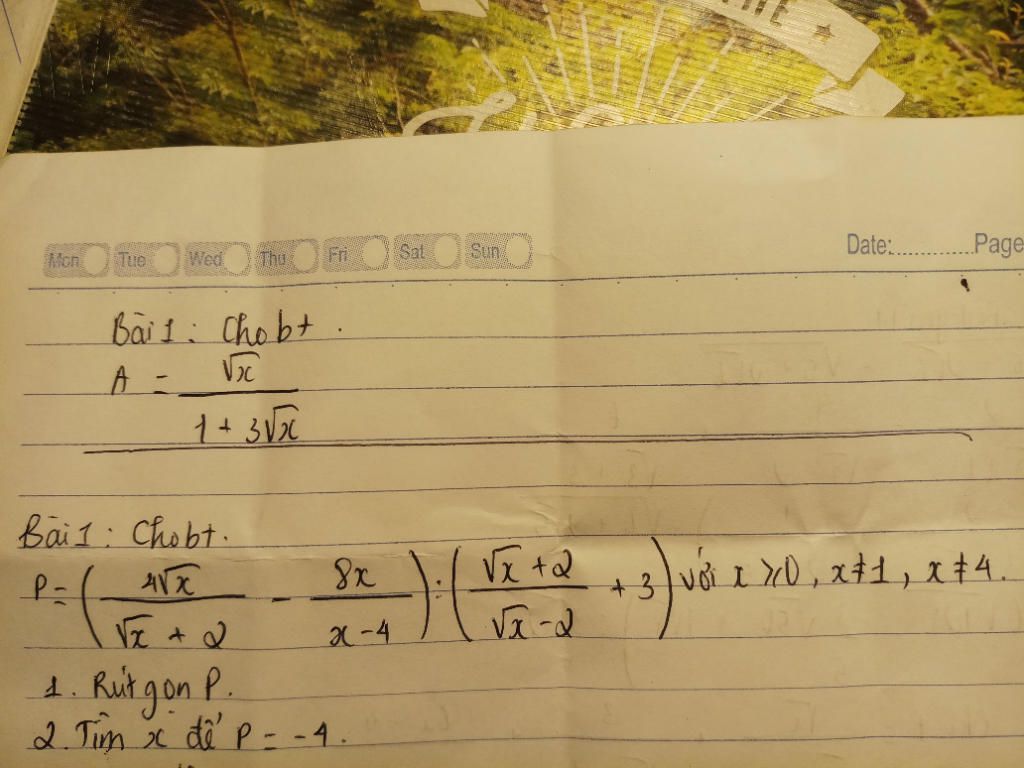 Mon Tue Wed Thu Fri Sat Sun Date:............Page
Bài 1: Cho bt.
A = √x / (1 + 3√x)
Bài 1: Cho bt.
P = (4√x / (√x + 2) - 8x / (x - 4)) : ((√x + 2) / (√x - 2) + 3) với x ≥ 0, x ≠ 1, x ≠ 4.
1. Rút gọn P.
2. Tìm x để P = -4.